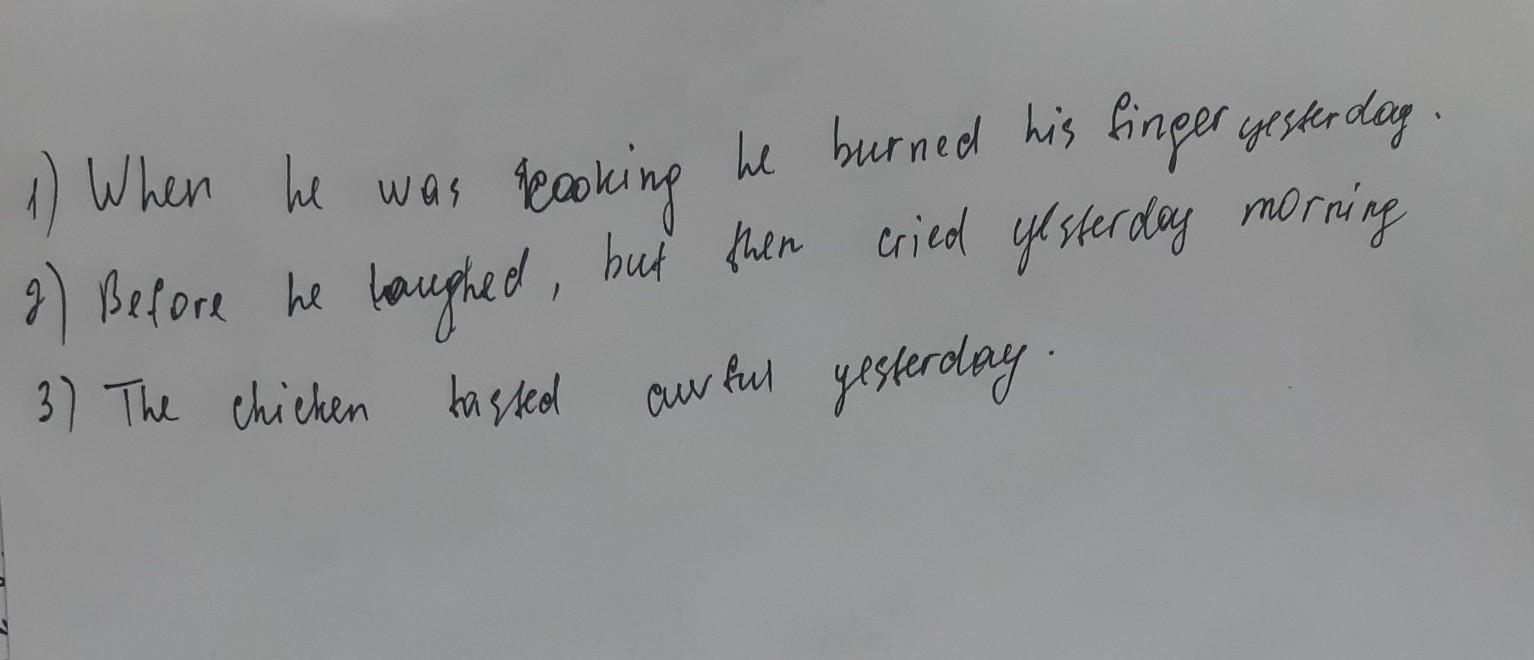 1) When he was cooking he burned his finger yesterday.
2) Before he laughed, but then cried yesterday morning
3) The chicken tasted awful yesterday.